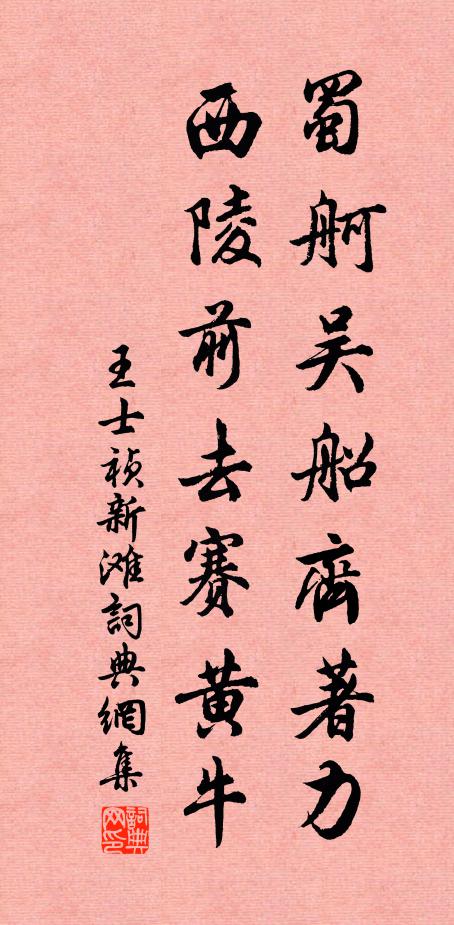 蜀舸吴船齊著力
西陵前去賽黄牛
王士祯新滩詞典網集
詞典网印